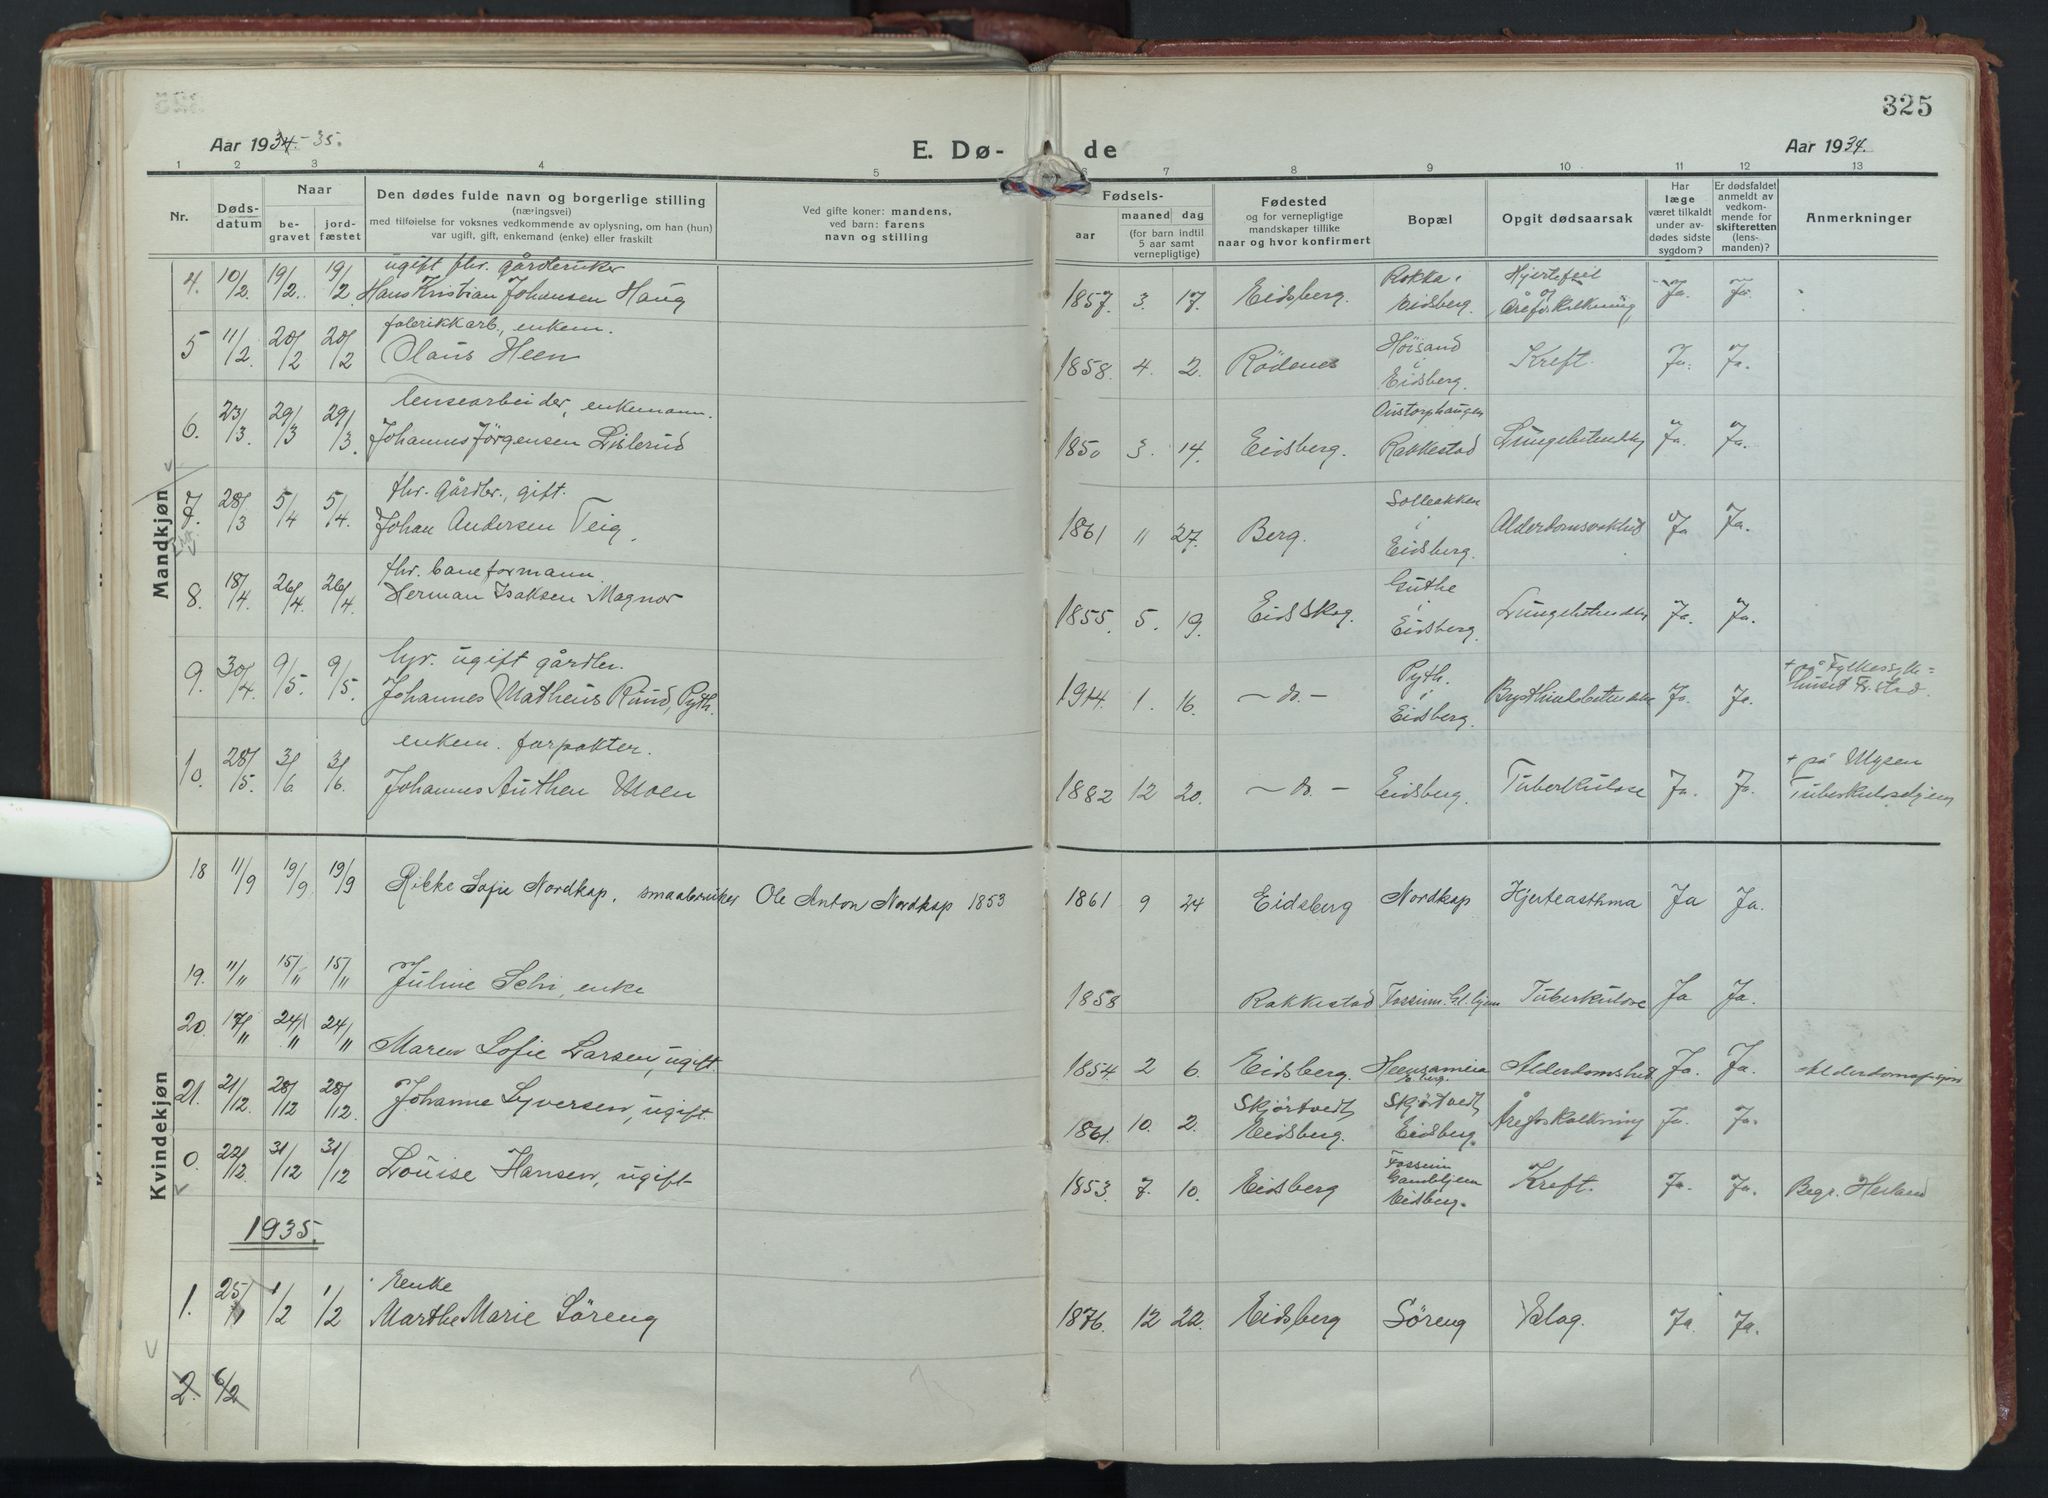 325
Aar 1934-35.
E. Dø-
de
Aar 1934.
1 2 3 4 5 6 7 8 9 10 11 12 13
Nr.
Døds-
datum
Naar
be-
gravet
jord-
fæstet
Den dødes fulde navn og borgerlige stilling
(næringsvei)
med tilføielse for voksnes vedkommende av oplysning, om han (hun)
var ugift, gift, enkemand (enke) eller fraskilt
Ved gifte koner: mandens,
ved barn: farens
navn og stilling
Fødsels-
aar
maaned
dag
(for barn indtil
5 aar samt
vernepligtige)
Fødested
og for vernepligtige
mandskaper tillike
naar og hvor konfirmert
Bopæl
Opgit dødsaarsak
Har
læge
været tilkaldt
under av-
dødes sidste
sygdom?
Er dødsfaldet
anmeldt av
vedkom-
mende for
skifteretten
(lens-
manden)?
Anmerkninger
Mandkjøn
ugift fhv. gårdbruker
4. 10/2. 19/2. 19/2 Hans Kristian Johansen Haug 1857. 3. 17. Eidsberg. Rakka i
Eidsberg. Hjertefeil
og
Åreforkalkning Ja. Ja.
fabrikkarb., enkem.
5 11/2 20/2 20/2 Olaus Heen 1858. 4. 2. Rödenes Höisand
i
Eidsberg. Kreft. Ja. Ja.
lensearbeider, enkemann.
6. 23/3. 29/3 29/3. Johannes Jörgensen Lislerud 1850 3. 14. Eidsberg. Oustorphaugen
Rakkestad Lungebetendelse Ja. Ja.
fhv. gårdbr., gift.
7. 28/3 5/4 5/4. Johan Andersen Teig, 1861 11 27. Berg. Solbakken
i
Eidsberg. Ja Ja.
fhv. baneformann
8. 18/4. 26/4. 26/4. Herman Isaksen Magnor 1855. 5. 19. Eidskog. Guthe
i
Eidsberg. Lungebetendelse Ja. Ja.
ugift gårdbr.
9. 30/4 9/5. 9/5. Johannes Matheus Rund, Pyth. 1914. 1. 16. - do. - Pyth.
i
Eidsberg. Brysthindebetendelse Ja. Ja. + på Fylkessyke=
huset Fr.stad.
enkem. forpakter.
10. 28/5. 3/6 3/6. Johannes Authen Moen 1882 12 20. - do. - Eidsberg. Tuberkulose Ja. Ja. + på Mysen
Tuberkulosehjem
Kvindekjøn
18 11/9 19/9 19/9 Rikke Sofie Nordkap, smaabruker Ole Anton Nordkap 1853 1861 9 24 Eidsberg Nordkap Hjerteasthma Ja Ja.
19. 11/11 15/11 15/11 Juline Sehi, enke 1858 Rakkestad Fossum Gl.hjem Tuberkulose Ja Ja.
20. 17/11 24/11 24/11 Maren Sofie Larsen, ugift 1854. 2 6. Eidsberg. Ja. Ja.
21. 21/12. 28/12 28/12. Johanne Syversen, ugift. 1861. 10. 2. Skjörtvedt,
Eidsberg. Skjörtvedt,
Eidsberg. Åreforkalkning Ja. Ja.
0. 22/12 31/12 31/12 Louise Hansen, ugift 1853. 7. 10. Eidsberg Fossum
Gamlehjem
Eidsberg. Kreft. Ja. Ja. Begr. Herland
1935.
Enke
1. 25/11 1/2 1/2 Marthe Marie Söreng 1876. 12 22. Eidsberg Söreng Slag. Ja. Ja.
2. 6/2